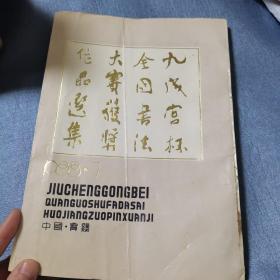 九成宫杯
全国書法
大赛獲獎
作品選集
1988·5
JIUCHENGGONGBEI
QUANGUOSHUFADASAI
HUOJIANGZUOPINXUANJI
中國·寳鷄